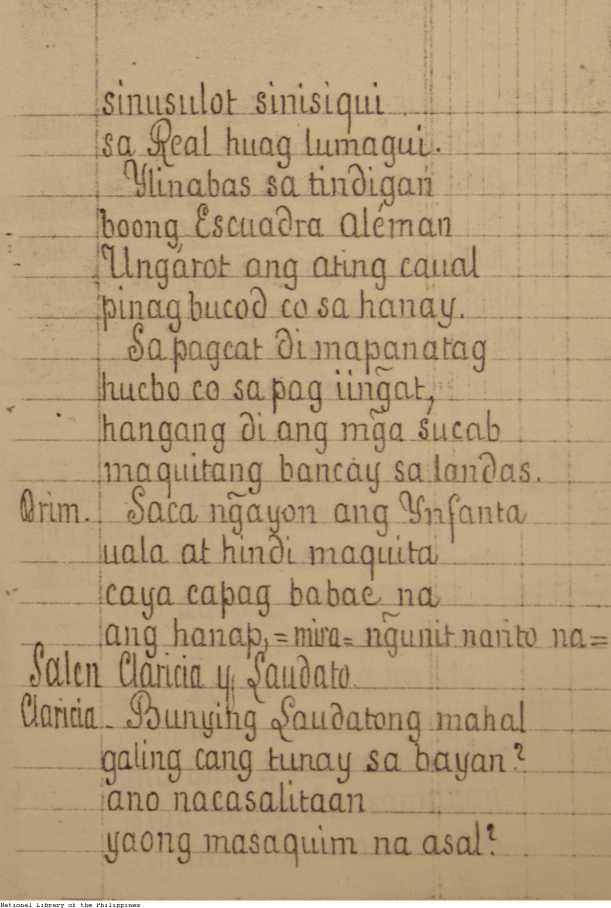 sinusulot sinisiqui
sa Real huag lumagui.
Ylinabas sa tindigan
boong Escuadra aléman
Ungárot ang ating caual
pinag bucod co sa hanay.
Sa pagcat di mapanatag
hucbo co sa pag iing̃at,
hangang di ang mg̃a sucab
maquitang bancay sa landas.
Orim. Saca ng̃ayon ang Ynfanta
uala at hindi maquita
caya capag babae na
ang hanap,=mira= ng̃unit narito na=
Salen Claricia y Laudato
Claricia. Bunying Laudatong mahal
galing cang tunay sa bayan?
ano nacasalitaan
yaong masaquim na asal?
National Library of the Philippines